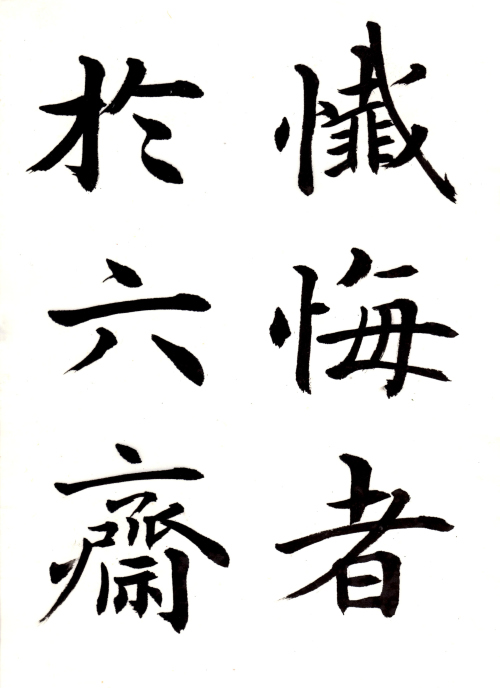 懺悔者
於六齋